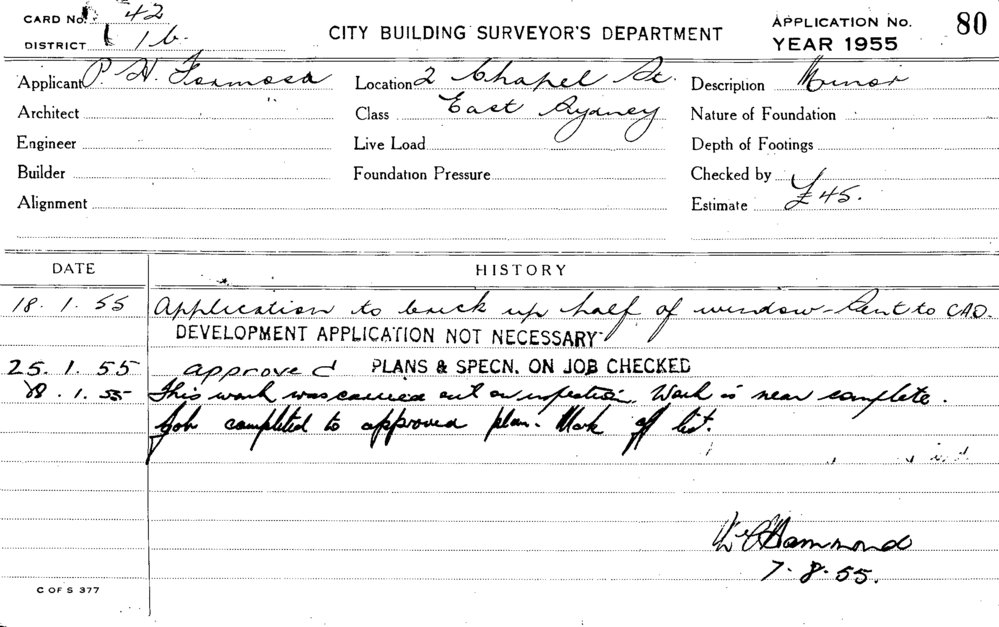 CARD No. 42
DISTRICT 1b.
CITY BUILDING SURVEYOR'S DEPARTMENT
APPLICATION No. 80
YEAR 1955
Applicant P. H. Formosa
Location 2 Chapel St.
Description Minor
Architect
Class East Sydney
Nature of Foundation
Engineer
Live Load
Depth of Footings
Builder
Foundation Pressure
Checked by
Alignment
Estimate £45.
DATE
HISTORY
18. 1. 55 Application to brick up half of window - Sent to CAO.
DEVELOPMENT APPLICATION NOT NECESSARY
25. 1. 55 approved PLANS & SPECN. ON JOB CHECKED
28. 1. 55 This work was carried out on inspection. Work is near complete.
Job completed to approved plan. Mark off list.
Hammond
7. 8. 55.
C OF S 377